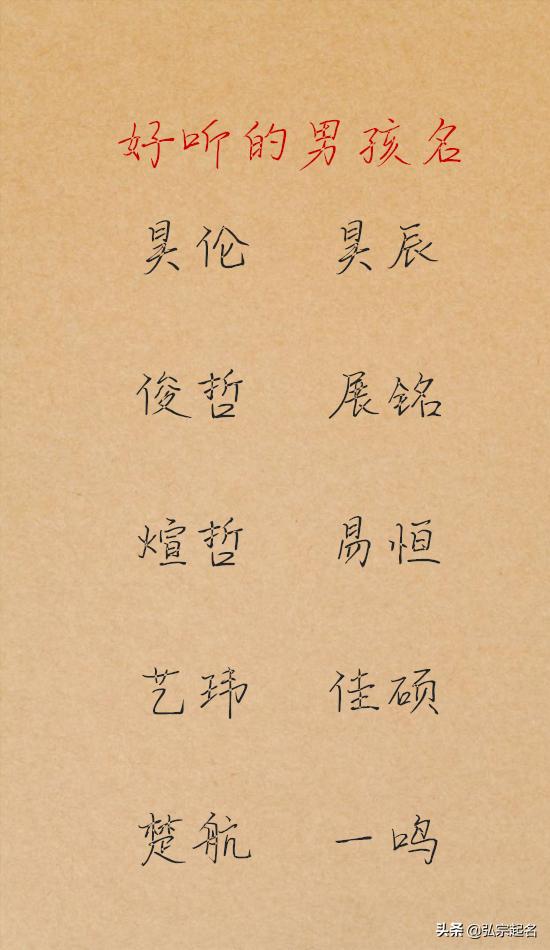 好听的男孩名
昊伦 昊辰
俊哲 展铭
煊哲 易恒
艺玮 佳硕
楚航 一鸣
头条 @弘宗起名